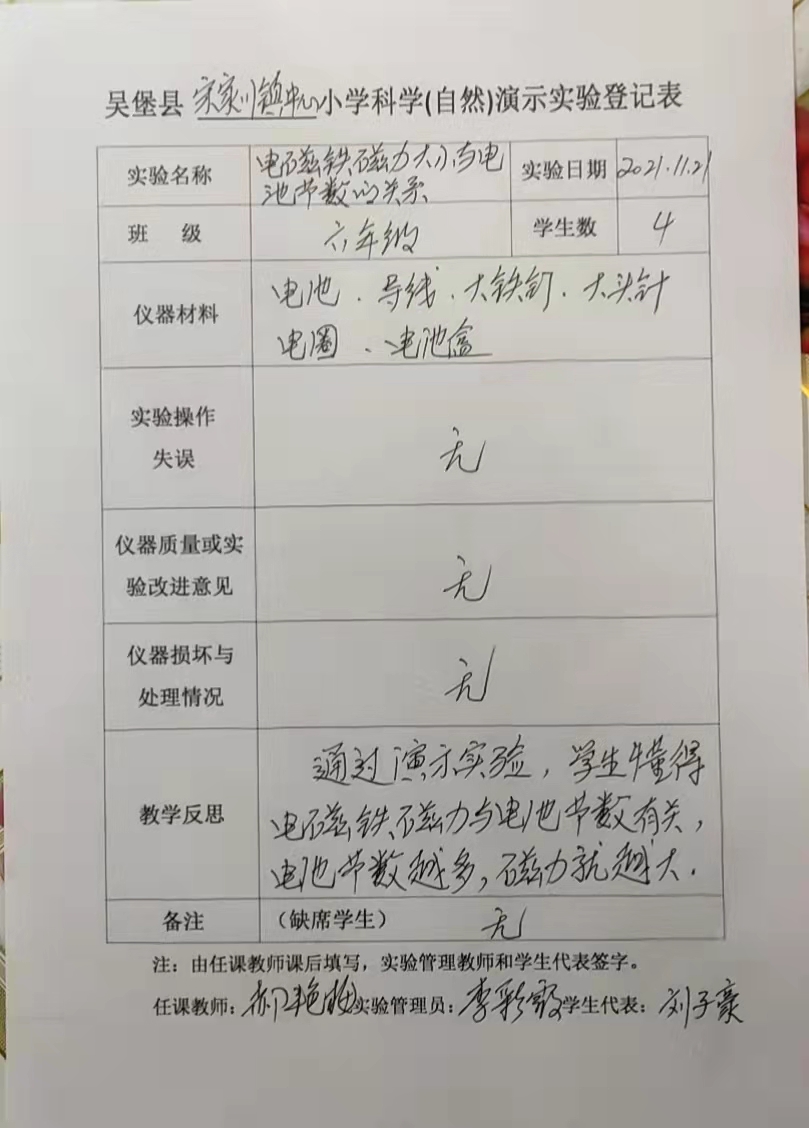 吴堡县 宋家川镇中心小学科学(自然)演示实验登记表
实验名称 电磁铁磁力大小与电池节数的关系 实验日期 2021.11.21
班 级 六年级 学生数 4
仪器材料 电池、导线、大铁钉、大头针
电圈、电池盒
实验操作
失误 无
仪器质量或实
验改进意见 无
仪器损坏与
处理情况 无
教学反思 通过演示实验，学生懂得
电磁铁磁力与电池节数有关，
电池节数越多，磁力就越大.
备注 (缺席学生) 无
注：由任课教师课后填写，实验管理教师和学生代表签字。
任课教师：郝艳梅 实验管理员：李彩霞 学生代表：刘子豪